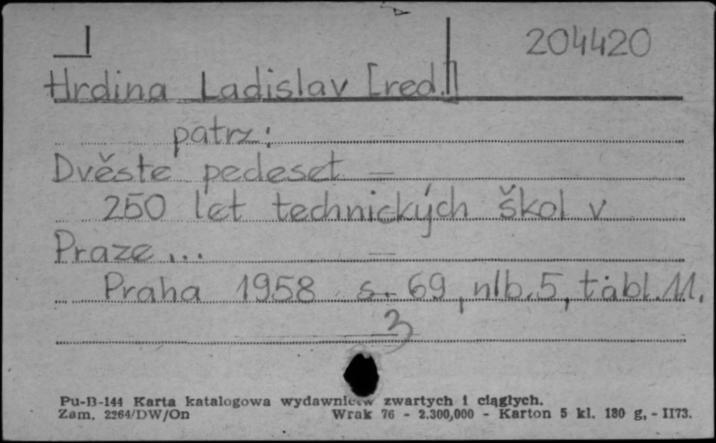 204420
Hrdina Ladislav [red.]
patrz:
Dvěste pedeset —
250 let technických škol v
Praze... —
Praha 1958 s. 69, nlb. 5, tabl. 11.
3
Pu-B-144 Karta katalogowa wydawnictw zwartych i ciągłych.
Zam. 2264/DW/On Wrak 76 - 2.300,000 - Karton 5 kl. 180 g, - II73.